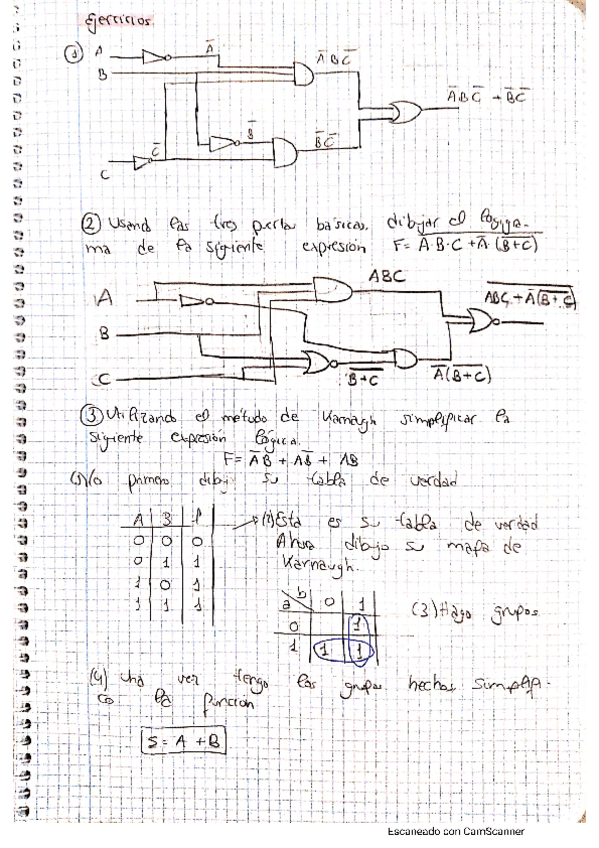 Ejercicios
① A Ā Ā B C̅
B
Ā B C̅ + B̅ C̅
B̅ B̅ C̅
C̅
C
② Usando las tres puertas básicas, dibujar el logigra-
ma de la siguiente expresión F= A·B·C + Ā·(B+C)
ABC
A ABC + Ā(B+C)
B
C B+C Ā(B+C)
③ Utilizando el método de Karnaugh simplificar la
siguiente expresión lógica.
F= ĀB + AB̅ + AB
(1) Yo primero dibujo su tabla de verdad
A B f → (2) Esta es su tabla de verdad
0 0 0 Ahora dibujo su mapa de
0 1 1 Karnaugh.
1 0 1
1 1 1
a b 0 1 (3) Hago grupos
0 1
1 1 1
(4) Una vez tengo los grupos hechos simplifi-
co la función
S = A + B
Escaneado con CamScanner